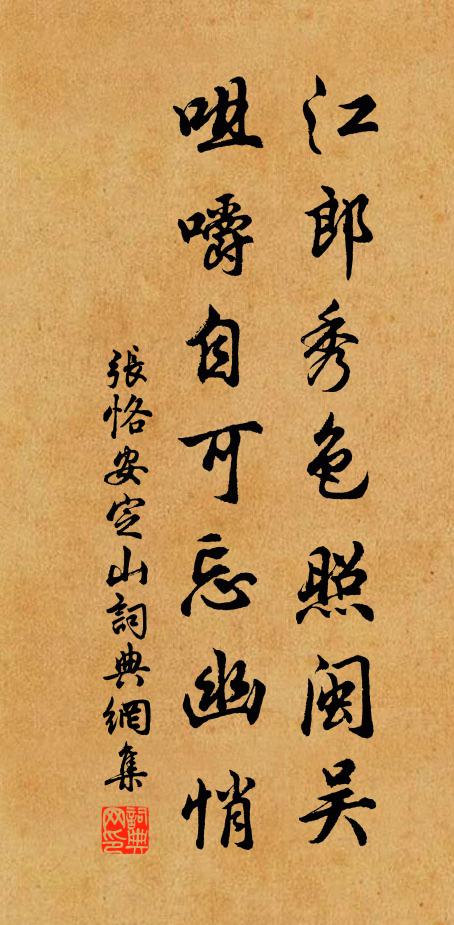 江郎秀色照闽吴
咀嚼自可忘幽悄
張恪安定山詞典網集
詞典网印